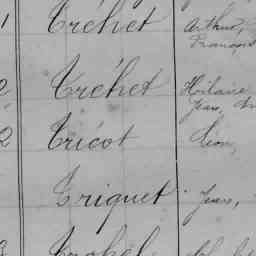 1 Tréhet Arthur,
François
2 Tréhet Hilaire
Jean,
2 Tricot Léon,
Triquet Jean,
3